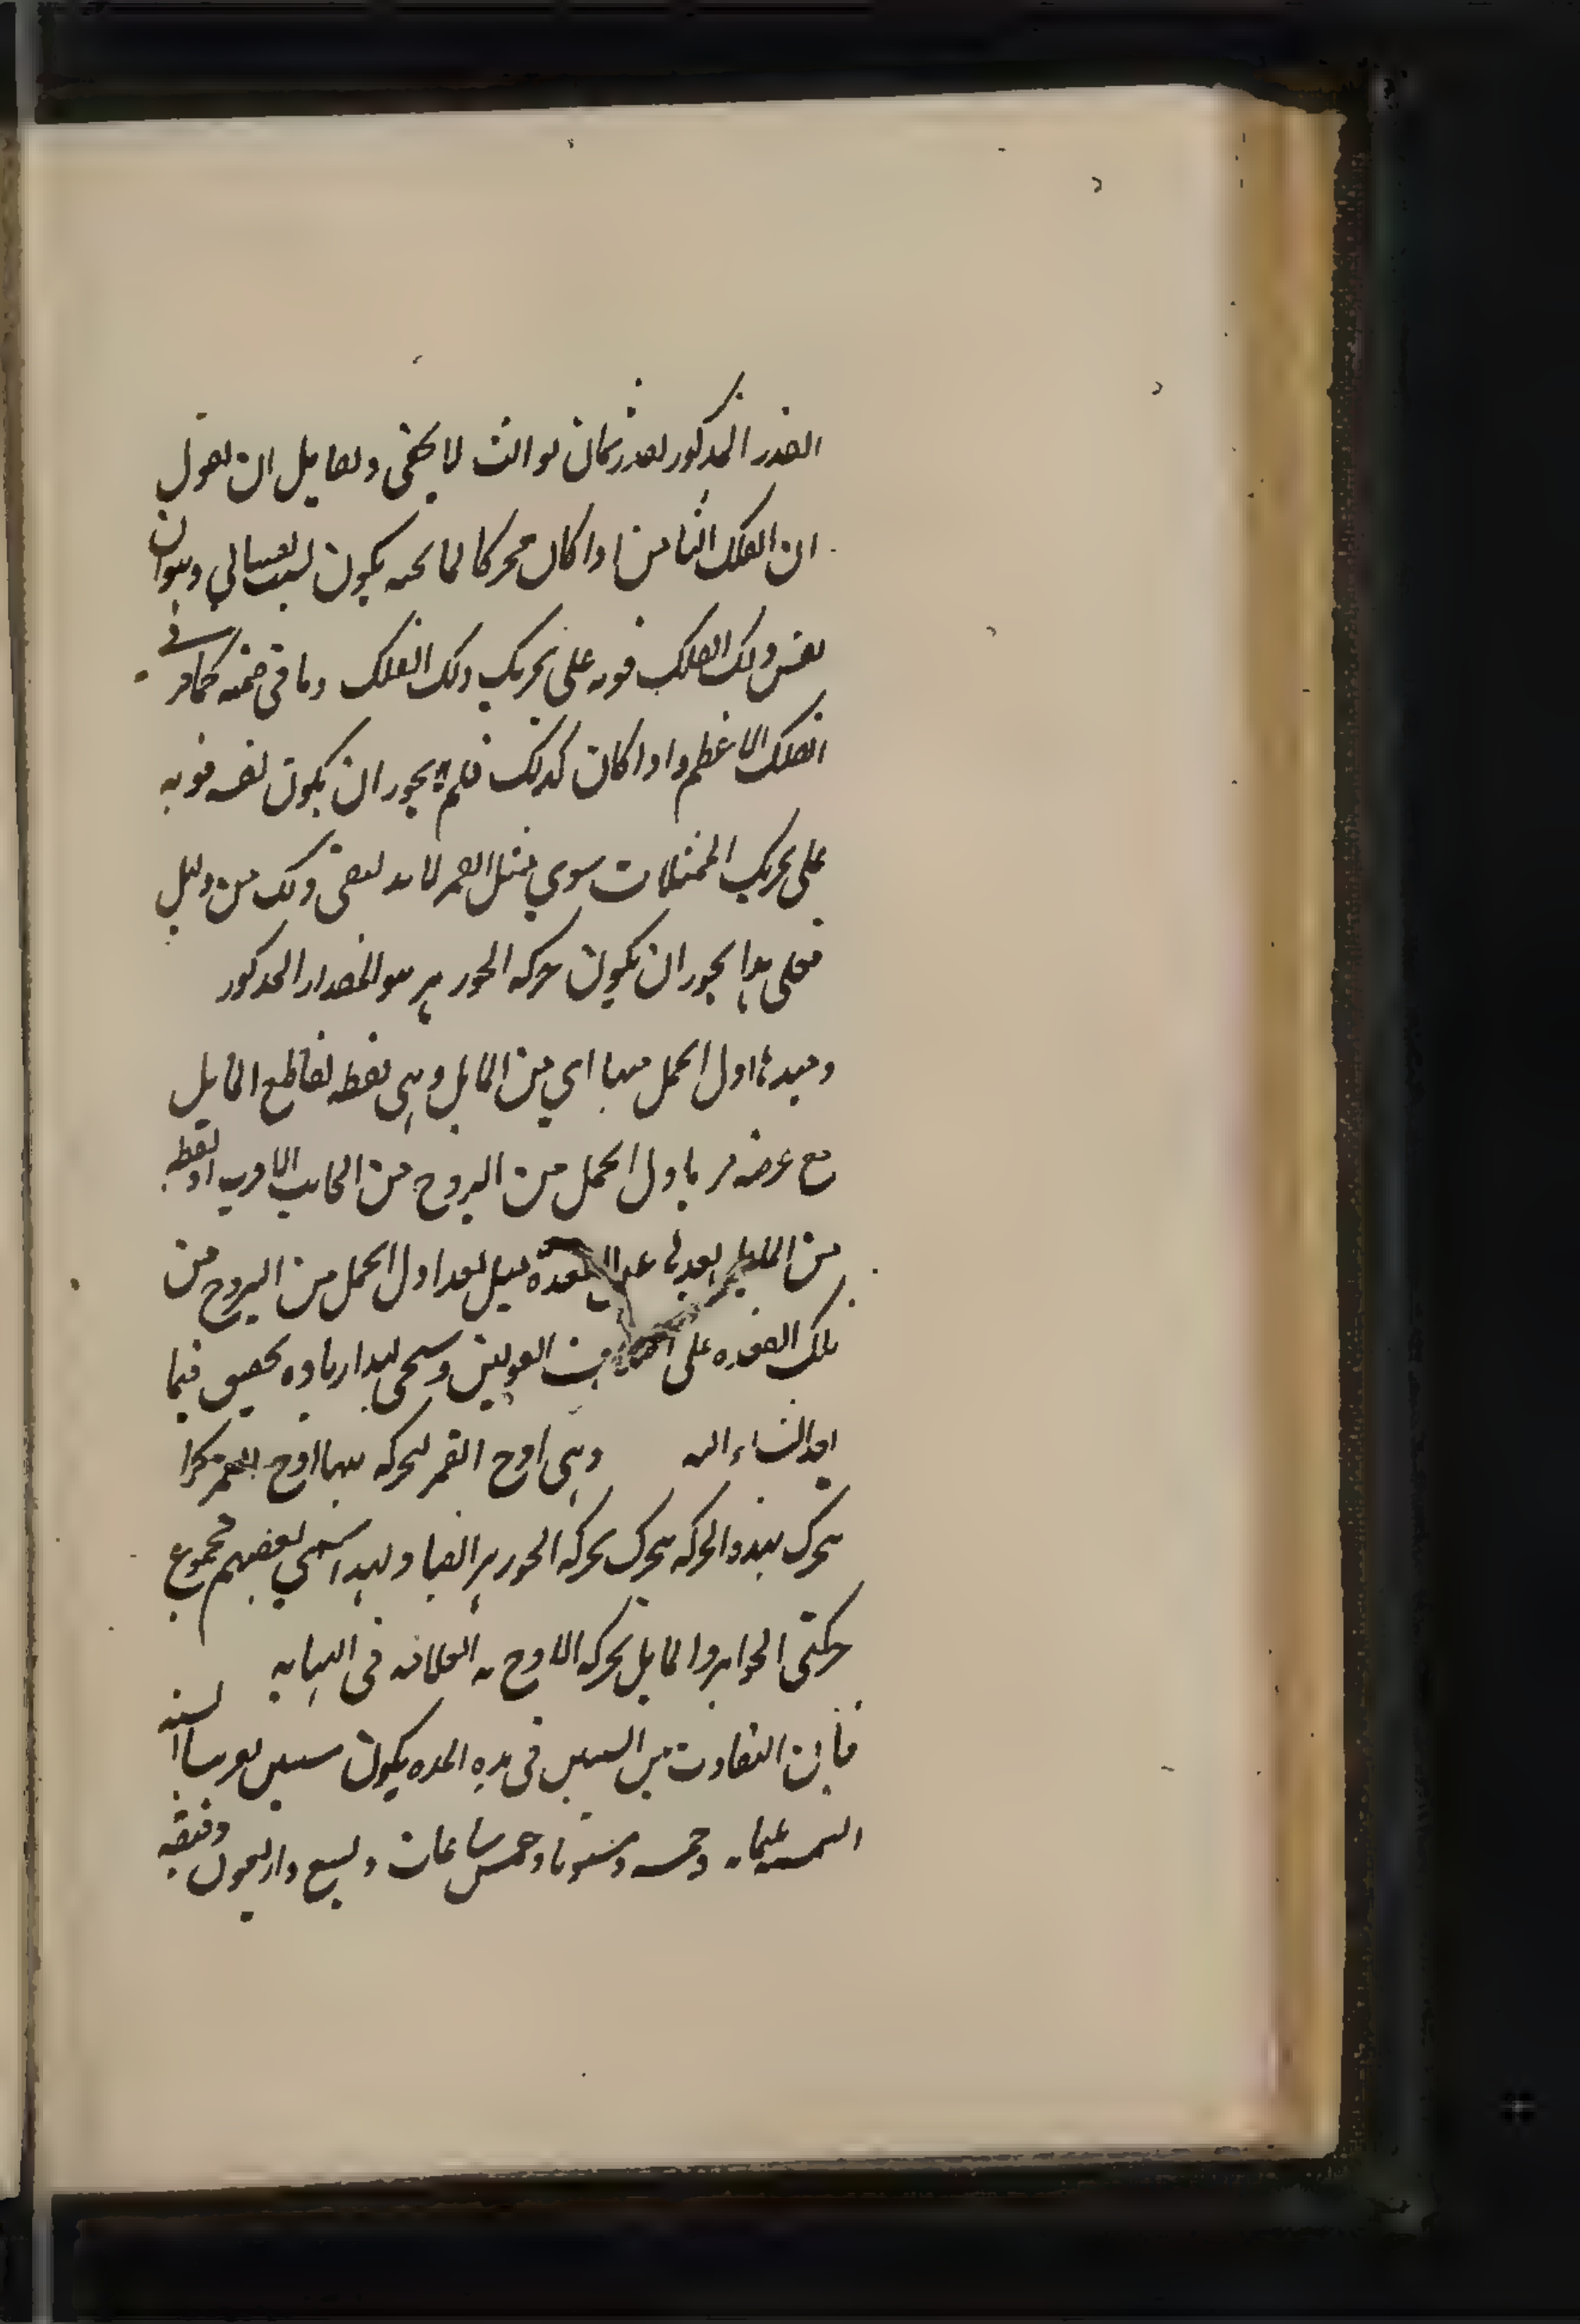 القدر المذكور بقدر ثمان ثوالث لا يخفى ولقايل ان يقول
ان الفلك الثامن اذا كان محركا لما تحته يكون لسبب نفساني وهو ان
نفس ذلك الفلك قويه على تحريك ذلك الفلك وما في ضمنه كما مر في
الفلك الاعظم واذا كان كذلك فلم لا يجوز ان يكون نفسه قويه
على تحريك الممثلات سوي ممثل القمر لا بد لنفى ذلك من دليل
فعلى هذا يجوز ان يكون حركه الجوزهر هو المقدار المذكور
ومبدءها اول الحمل منها اي من المايل وهى نقطه تقاطع المايل
مع عرضه مر باول الحمل من البروج من الجانب الاقرب او نقطه
من المايل بعدها عن العقده مثل بعد اول الحمل من البروج من
تلك العقده على القولين وسيجي لهذا زياده تحقيق فيما
بعد انشاء الله وهى اوج القمر لحركه بها اوج القمر كذا
يتحرك بهذه الحركه يتحرك بحركه الجوزهر ايضا ولهذا سمي بعضهم مجموع
حركتى الجوزهر والمايل بحركه الاوج العلامه في النهايه
فان التفاوت بين السنين في هذه المده يكون سنين تقريبا السنه
الشمسيه ثلثمايه وخمسه وستون يوما وخمس ساعات وتسع واربعون دقيقه